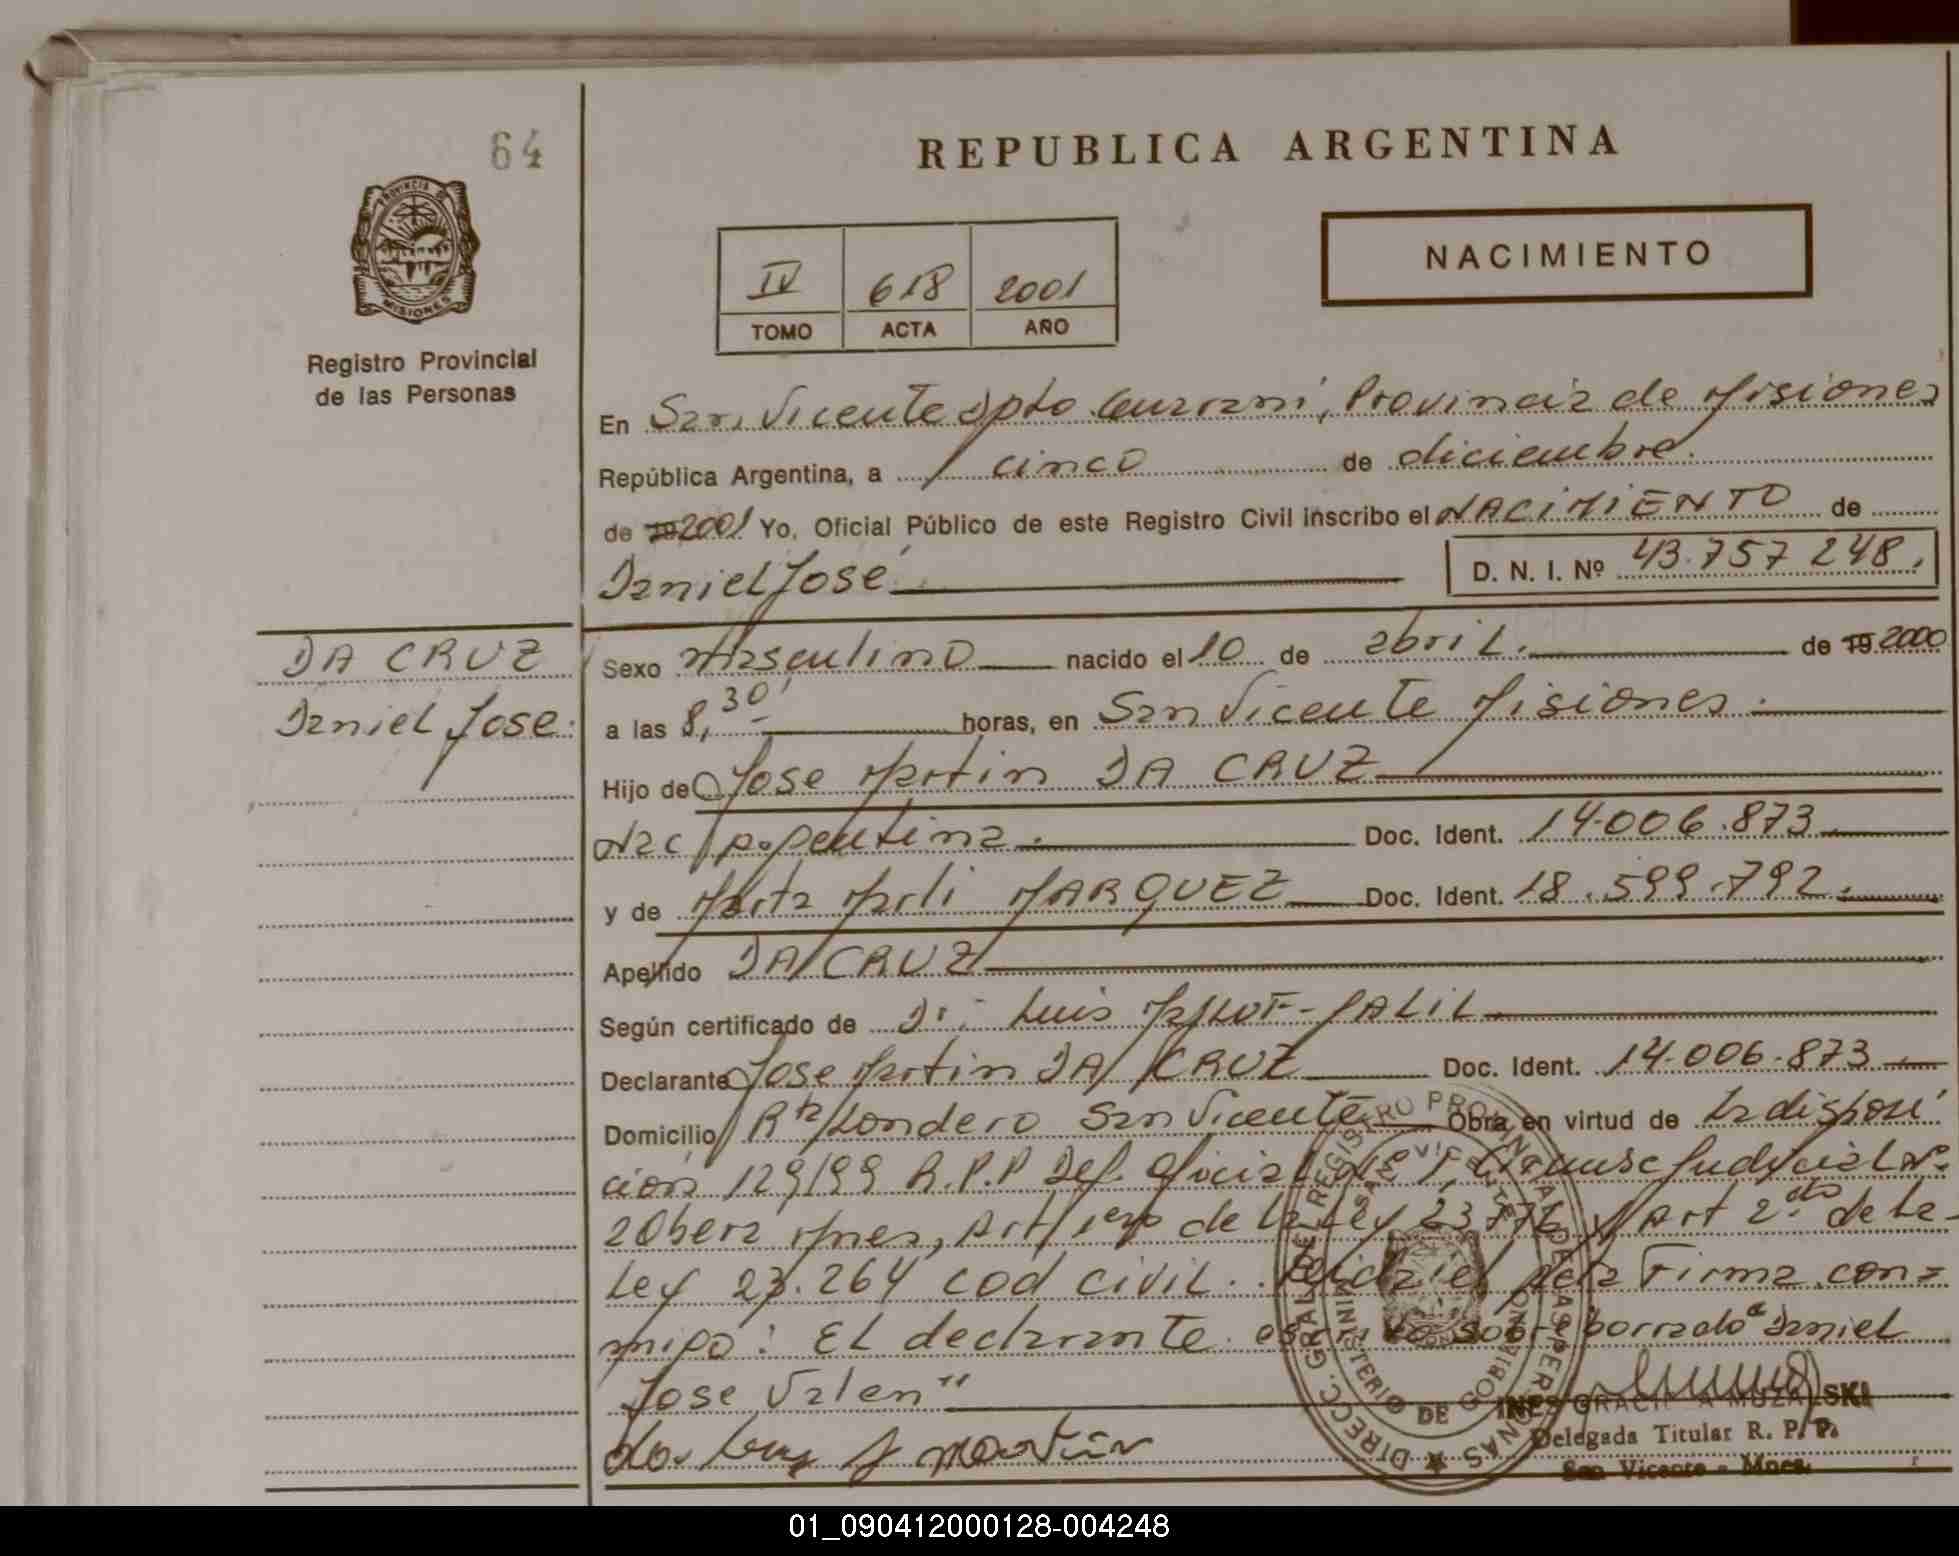 64
REPUBLICA ARGENTINA
PROVINCIA DE
MISIONES
Registro Provincial
de las Personas
IV 618 2001
TOMO ACTA AÑO
NACIMIENTO
En San Vicente Dpto Guarani, Provincia de Misiones
República Argentina, a cinco de diciembre
de 19 2001 Yo, Oficial Público de este Registro Civil inscribo el NACIMIENTO de
Daniel José D. N. I. Nº 43.757 248.
DA CRUZ
Daniel Jose.
Sexo Masculino nacido el 10 de abril. de 19 2000
a las 8,30' horas, en San Vicente Misiones.
Hijo de Jose Martin DA CRUZ
Nac Argentina. Doc. Ident. 14.006.873
y de Marta Marli MARQUEZ Doc. Ident. 18.599.792.
Apellido DA CRUZ
Según certificado de Dr: Luis JALIL
Declarante Jose Martin DA CRUZ Doc. Ident. 14.006.873
Domicilio Rta Londero San Vicente Obra en virtud de la disposi
ción 129/99 R.P.P Def. Oficial Nº 1, Circunsc Judicial Nº
2 Obera Mnes, Art 1ero de la Ley 23.776 y Art 2do de la
Ley 23.264 cod civil. Leida el acta Firma con=
migo: EL declarante. sobre borrado "Daniel
Jose Valen"
Da Cruz J Martin
DIRECC. GRAL. DEL REGISTRO PROVINCIAL DE LAS PERSONAS
SAN VICENTE
MINISTERIO DE GOBIERNO
INES GRACIELA MUZALSKI
Delegada Titular R. P. P.
San Vicente - Mnes.
01_090412000128-004248